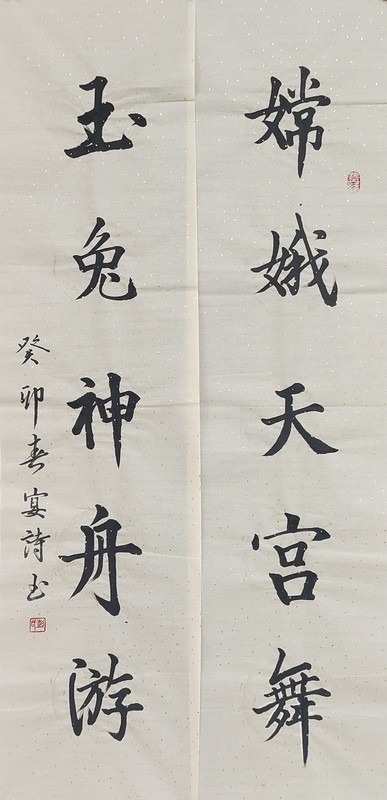 嫦娥天宫舞
玉兔神舟游
癸卯春宴詩书